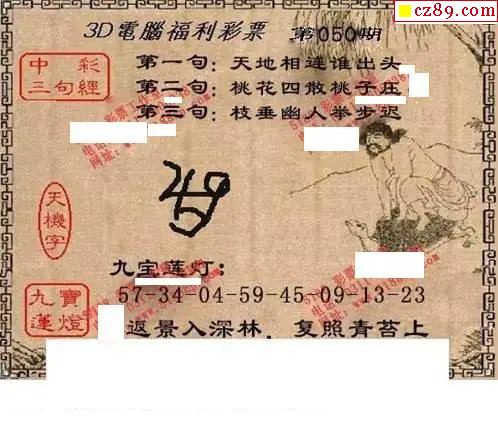 cz89.com
3D電腦福利彩票 第050期
中彩
三句經
第一句：天地相连谁出头
第二句：桃花四散桃子庄
第三句：枝垂幽人举步迟
天機字
九宝莲灯：
九寶蓮燈
57-34-04-59-45-09-13-23
返景入深林．复照青苔上